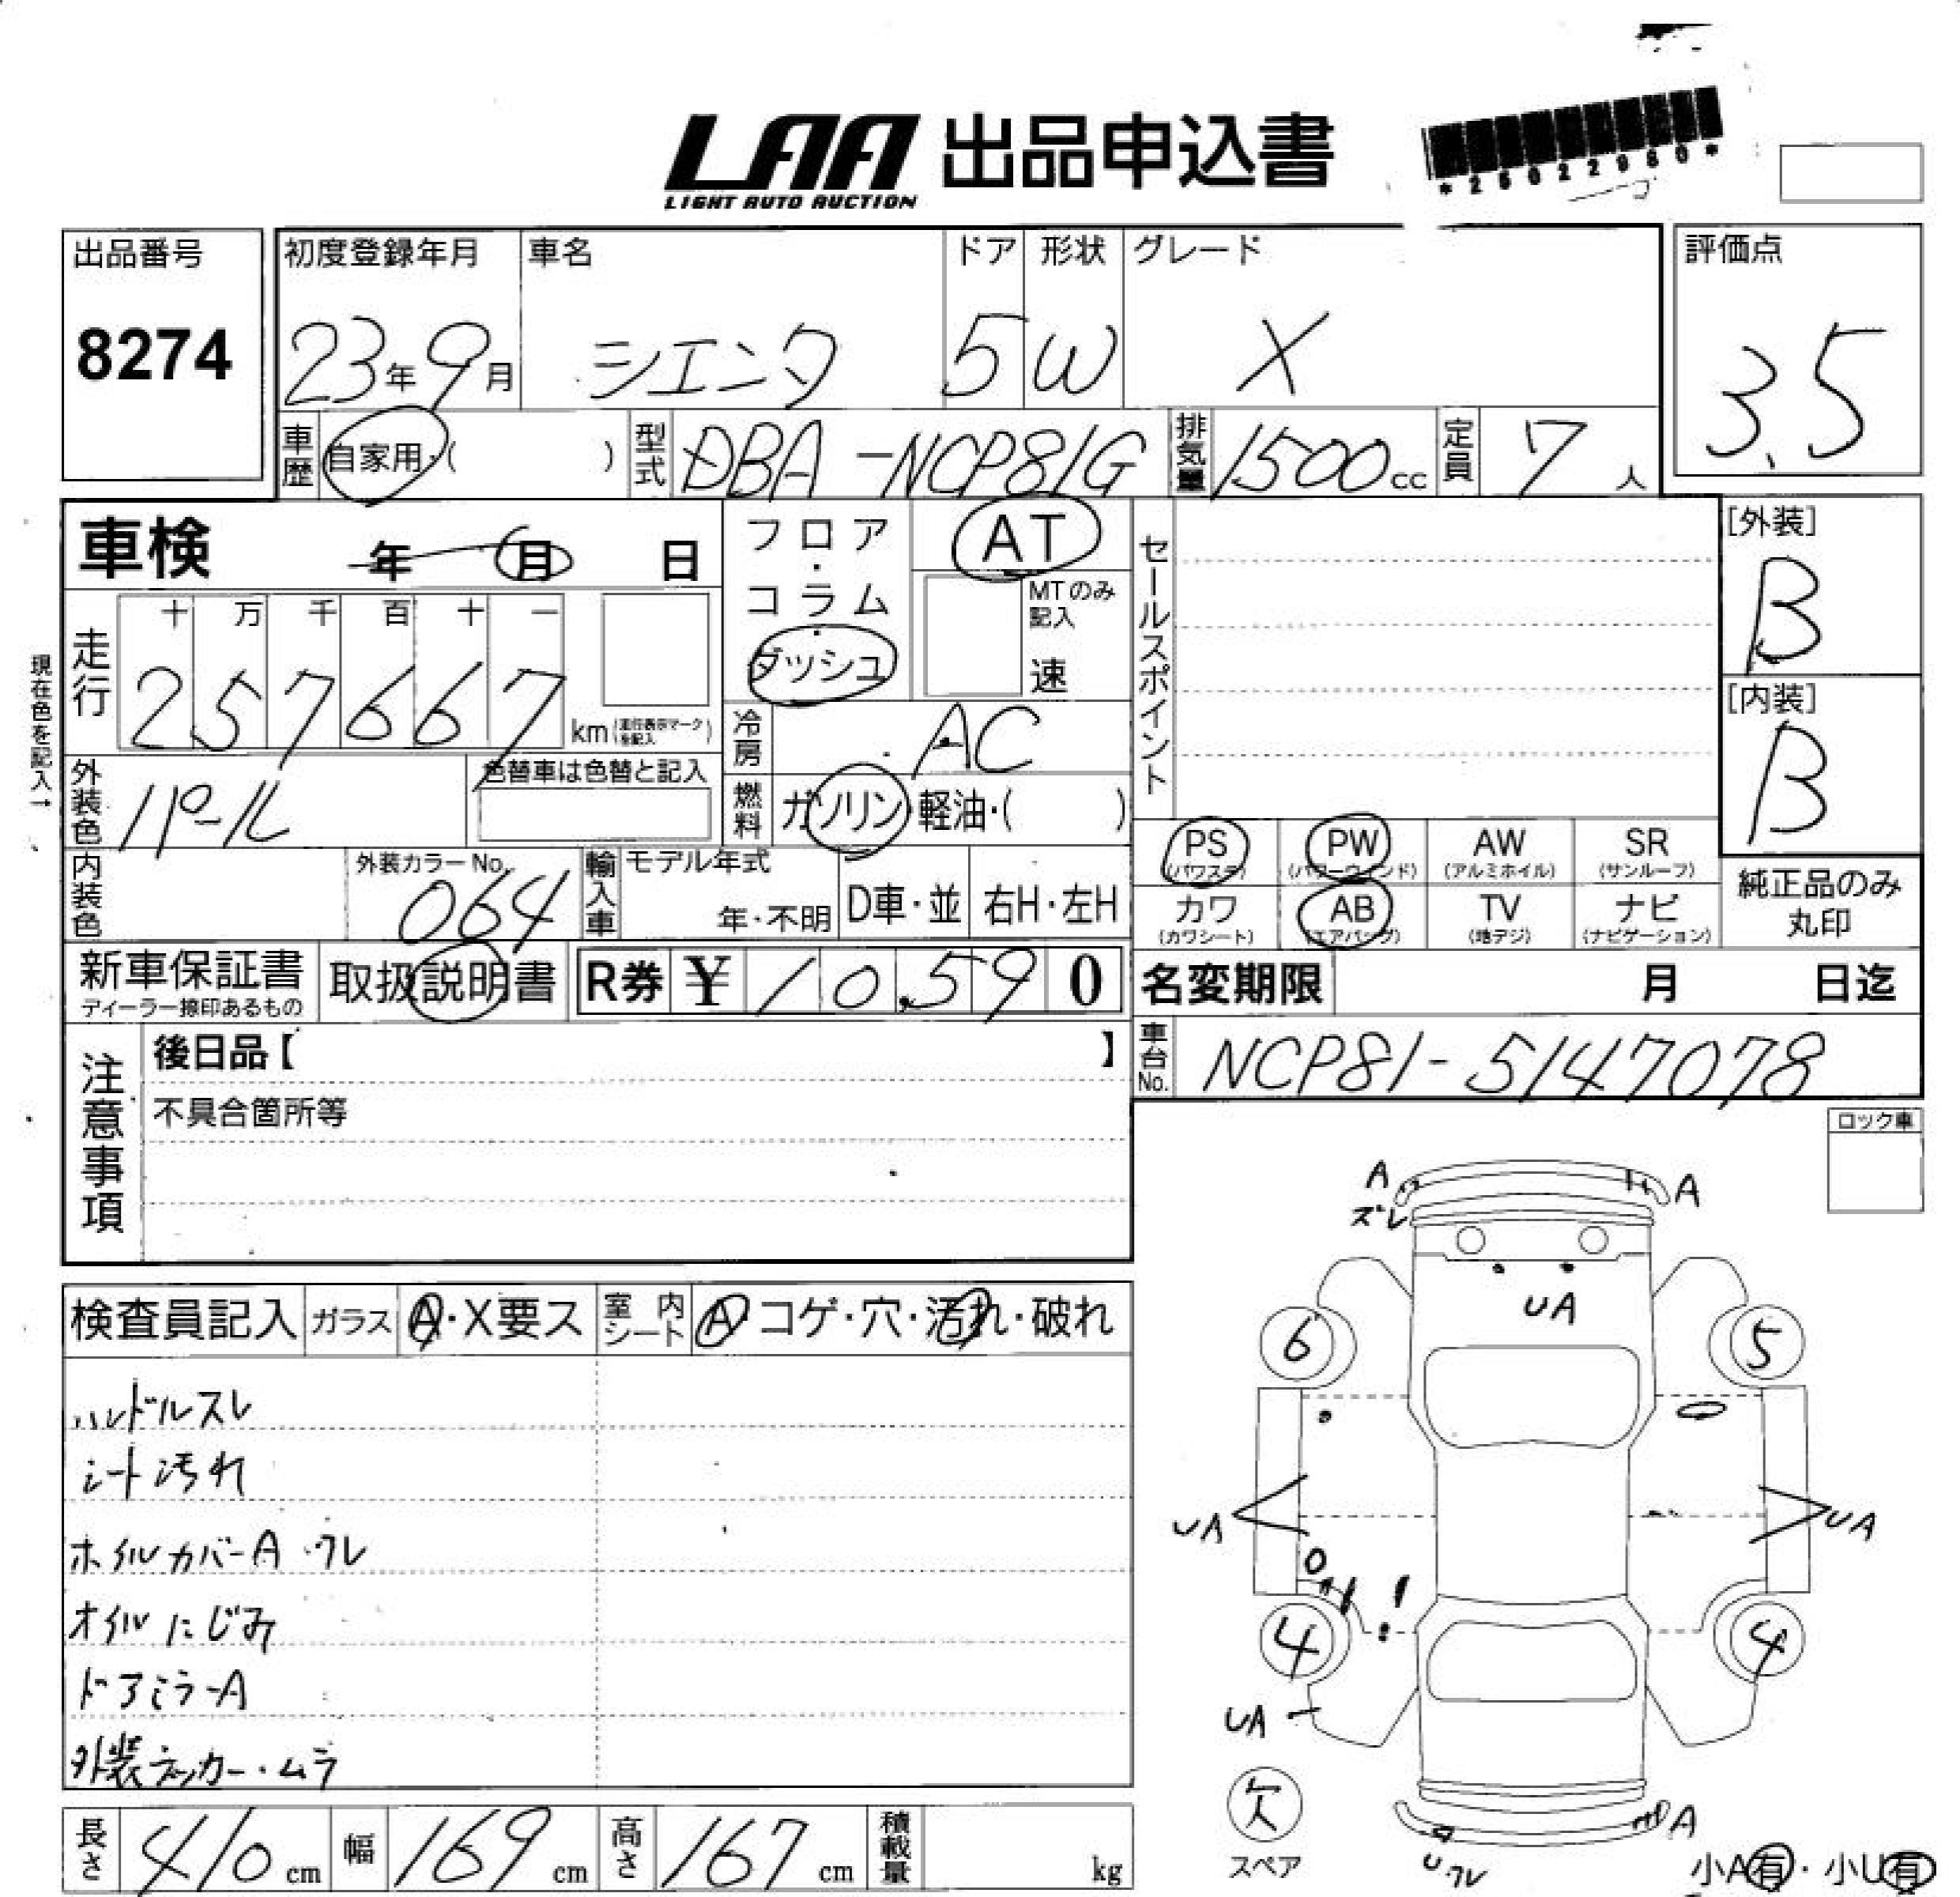 LAA 出品申込書
LIGHT AUTO AUCTION
*25022980*
出品番号
8274
初度登録年月 車名 ドア 形状 グレード 評価点
23年9月 シエンタ 5 W X 3.5
車歴 自家用・( ) 型式 DBA-NCP81G 排気量 1500cc 定員 7人
車検 年 月 日
フロア・コラム・ダッシュ
AT
MTのみ記入
速
セールスポイント
[外装]
B
[内装]
B
現在色を記入→
走行 十 万 千 百 十 一
257667 km (走行表示マークを記入)
冷房 AC
外装色 パール 色替車は色替と記入
燃料 ガソリン・軽油・( )
PS (パワステ) PW (パワーウィンド) AW (アルミホイル) SR (サンルーフ)
カワ (カワシート) AB (エアバッグ) TV (地デジ) ナビ (ナビゲーション)
純正品のみ丸印
内装色 外装カラーNo. 064 輸入車 モデル年式 年・不明 D車・並 右H・左H
新車保証書 ディーラー捺印あるもの 取扱説明書 R券 ¥ 10,590 名変期限 月 日迄
注意事項
後日品【 】
不具合箇所等
車台No. NCP81-5147078
ロック車
検査員記入 ガラス A・X要ス 室内シート A・コゲ・穴・汚れ・破れ
ハンドルスレ
シート汚れ
ホイルカバーA・ワレ
オイルにじみ
ドアミラーA
外装ステッカー・ムラ
A A
ズレ
UA
6 5
UA UA
4 4
UA
欠
スペア
A
Uワレ
小A有・小U有
長さ 410cm 幅 169cm 高さ 167cm 積載量 kg